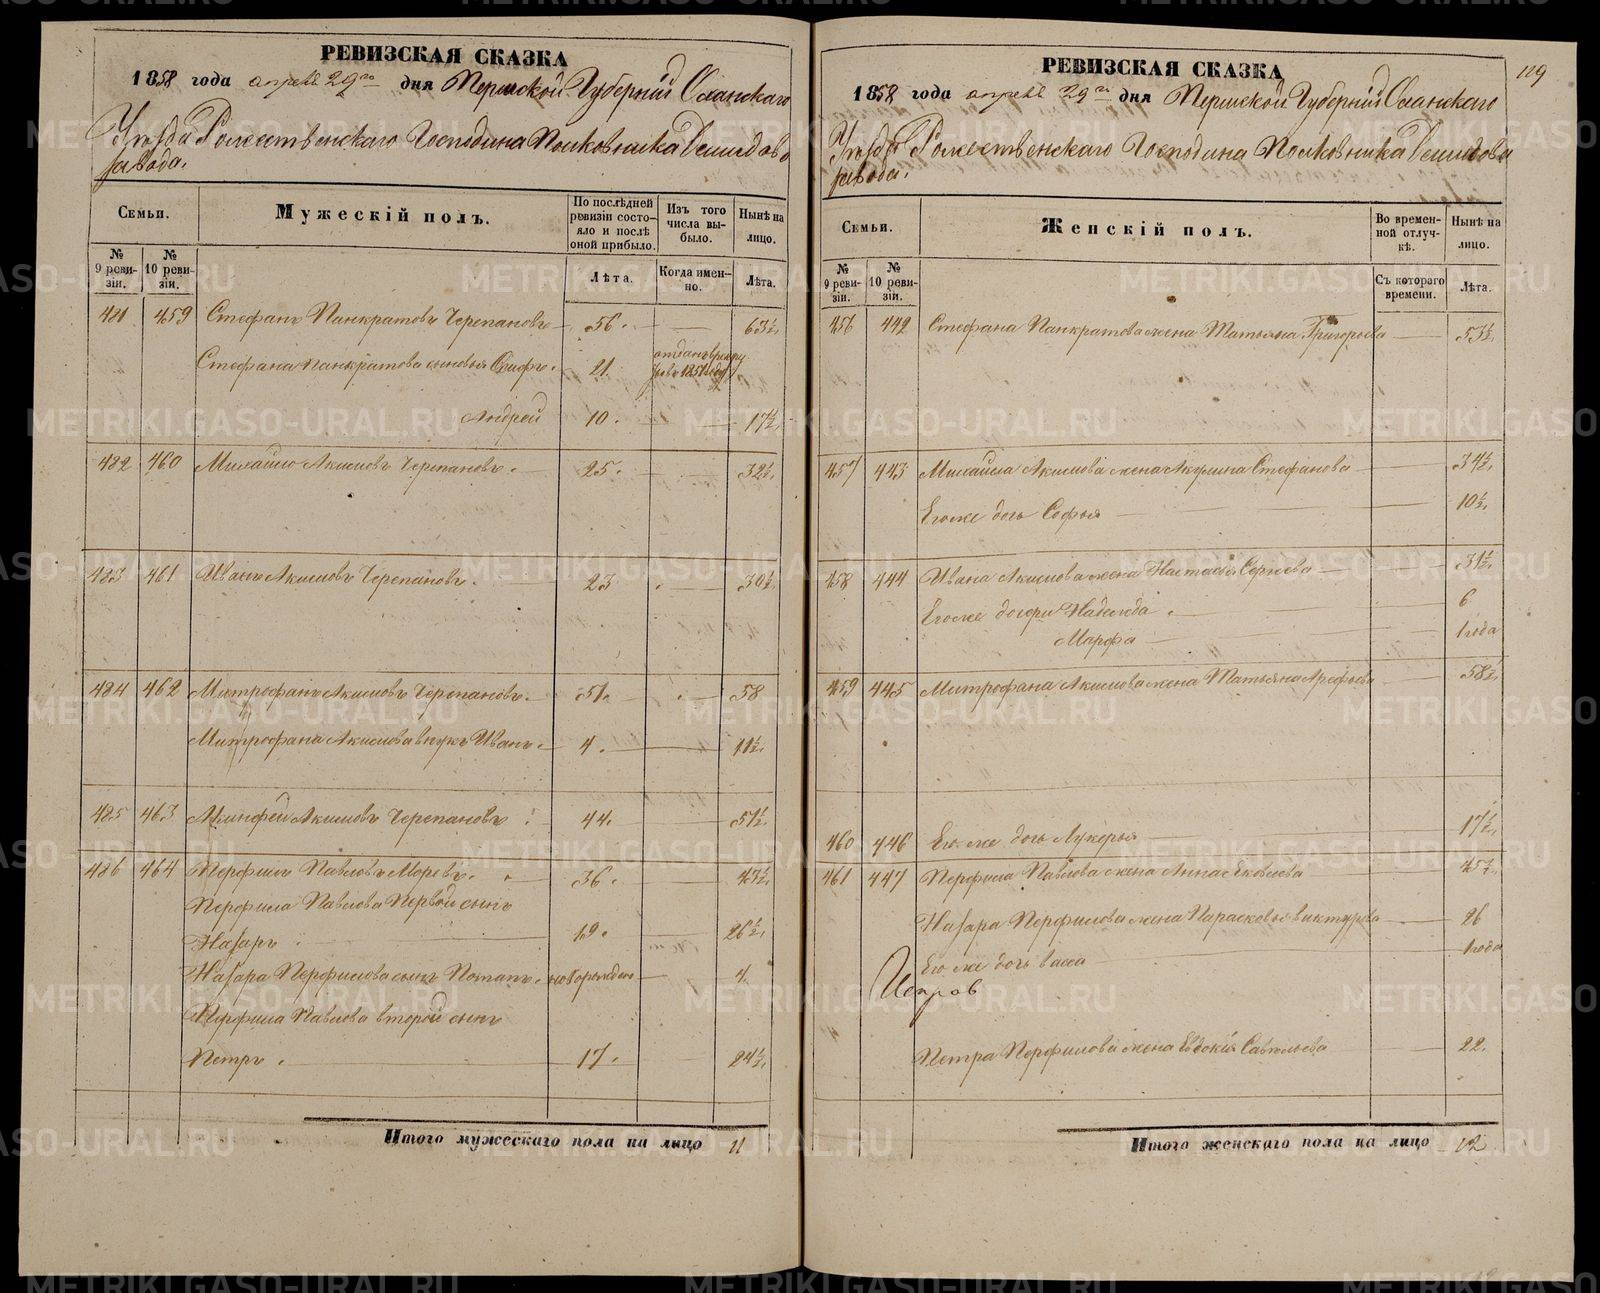 РЕВИЗСКАЯ СКАЗКА
1858 года апреля 29го дня Пермской Губернiи Оханскаго
Уѣзда Рожественскаго Господина Полковника Демидова
завода.
Семьи.
Мужескiй полъ.
По послѣдней ревизiи состояло и послѣ оной прибыло.
Изъ того числа выбыло.
Нынѣ на лицо.
№ 9 ревизiи.
№ 10 ревизiи.
Лѣта.
Когда именно.
Лѣта.
481 459 Стефанъ Панкратовъ Черепановъ 56. 63½
Стефана Панкратова сыновья 21. отданъ въ рекруты въ 1851 году
Андрей 10. 17½
482 460 Михайло Акимовъ Черепановъ. 25. 32½
483 461 Иванъ Акимовъ Черепановъ. 23 30½
484 462 Митрофанъ Акимовъ Черепановъ. 51. 58
Митрофана Акимова внукъ Иванъ. 4. 11½
485 463 Акинфей Акимовъ Черепановъ 44. 51½
486 464 Перфилъ Павловъ 36. 43½
Перфила Павлова Первой сынъ
Назаръ. 19. 26½
Назара Перфилова сынъ Потапъ. новорожден 4.
Перфила Павлова второй сынъ
Петръ. 17. 24½
Итого мужескаго пола на лицо 11
129
РЕВИЗСКАЯ СКАЗКА
1858 года апреля 29го дня Пермской Губернiи Оханскаго
Уѣзда Рожественскаго Господина Полковника Демидова
завода.
Семьи.
Женскiй полъ.
Во временной отлучкѣ.
Нынѣ на лицо.
№ 9 ревизiи.
№ 10 ревизiи.
Съ котораго времени.
Лѣта.
456 442 Стефана Панкратова жена Татьяна Григорьева 53½
457 443 Михайла Акимова жена Акулина Стефанова 34½
Его же дочь Софья 10½
458 444 Ивана Акимова жена Настасья Сергеева 31½
Его же дочери Надежда. 6
Марфа 1 года
459 445 Митрофана Акимова жена Татьяна Арефьева 58½
460 446 Его же дочь Лукерья 17½
461 447 Перфила Павлова жена Анна Яковлева 45½
Назара Перфилова жена Парасковья 26
Его же дочь Васса 1 года
Петра Перфилова жена Евдокiя Савельева 22.
Итого женскаго пола на лицо 12
METRIKI.GASO-URAL.RU